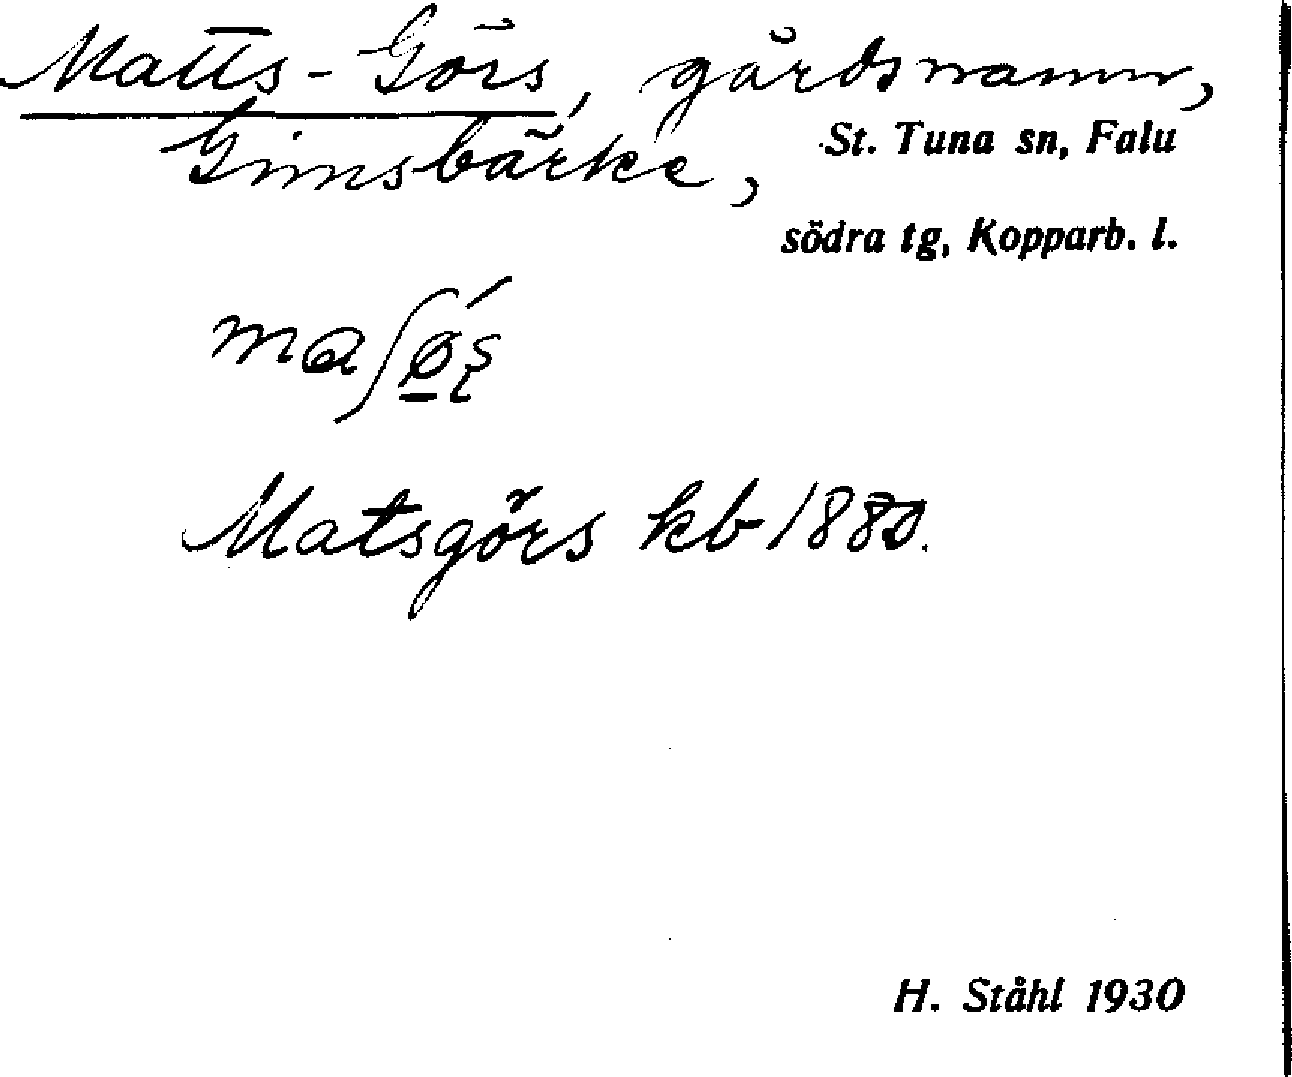 Matts-Görs, gårdsnamn,
Ginnsbärke,
St. Tuna sn, Falu
södra tg, Kopparb. l.
Matsgörs kb 1880.
H. Ståhl 1930